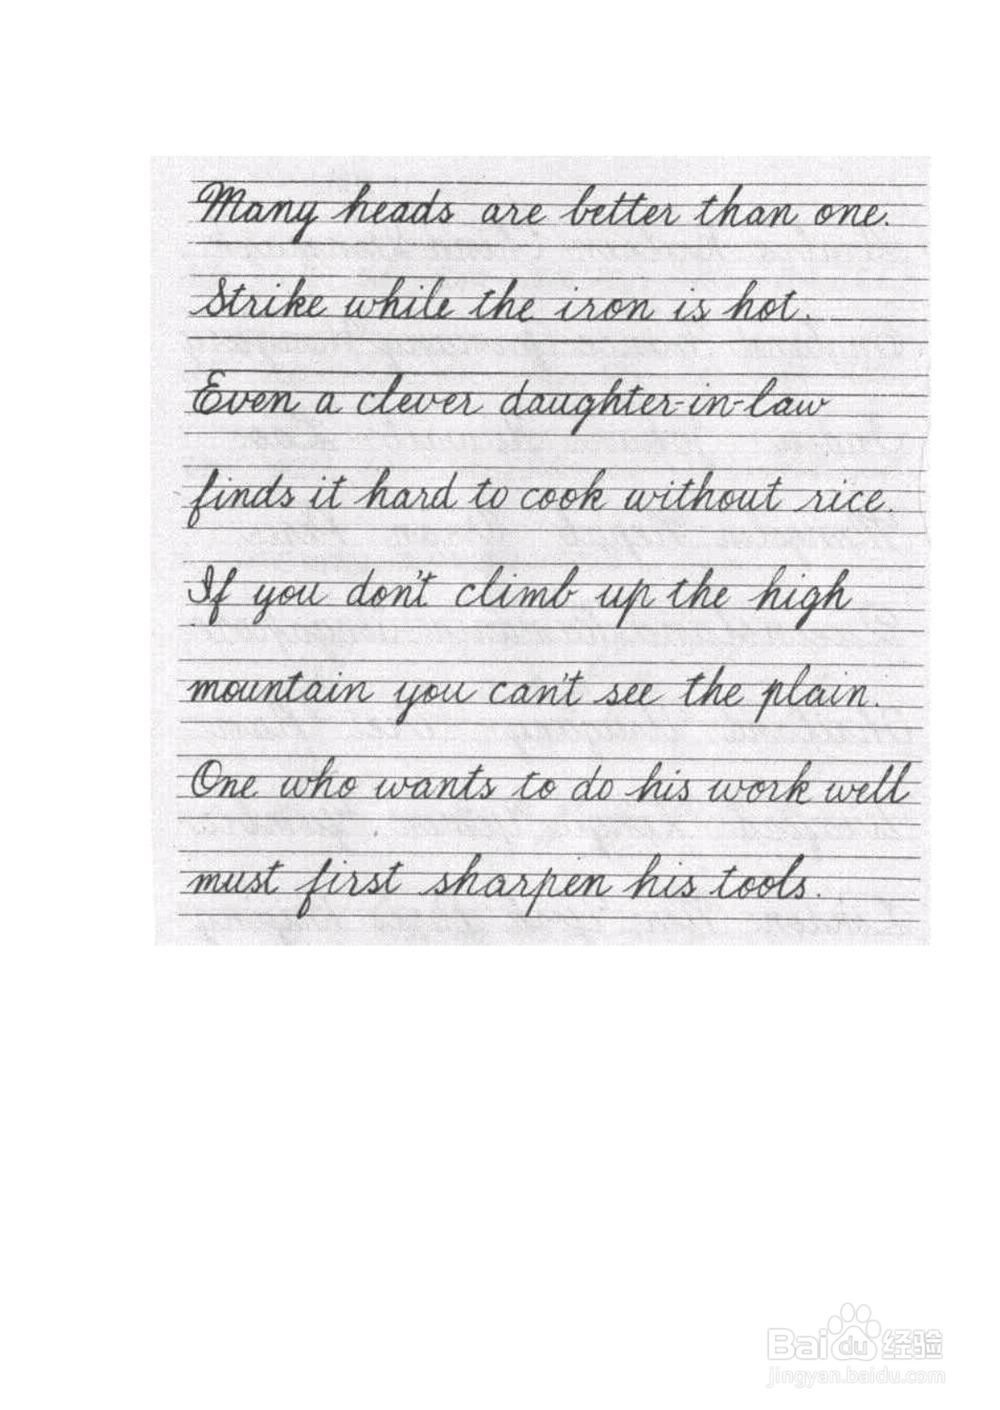 Many heads are better than one.
Strike while the iron is hot.
Even a clever daughter-in-law
finds it hard to cook without rice.
If you don't climb up the high
mountain you can't see the plain.
One who wants to do his work well
must first sharpen his tools.
Baidu 经验
jingyan.baidu.com